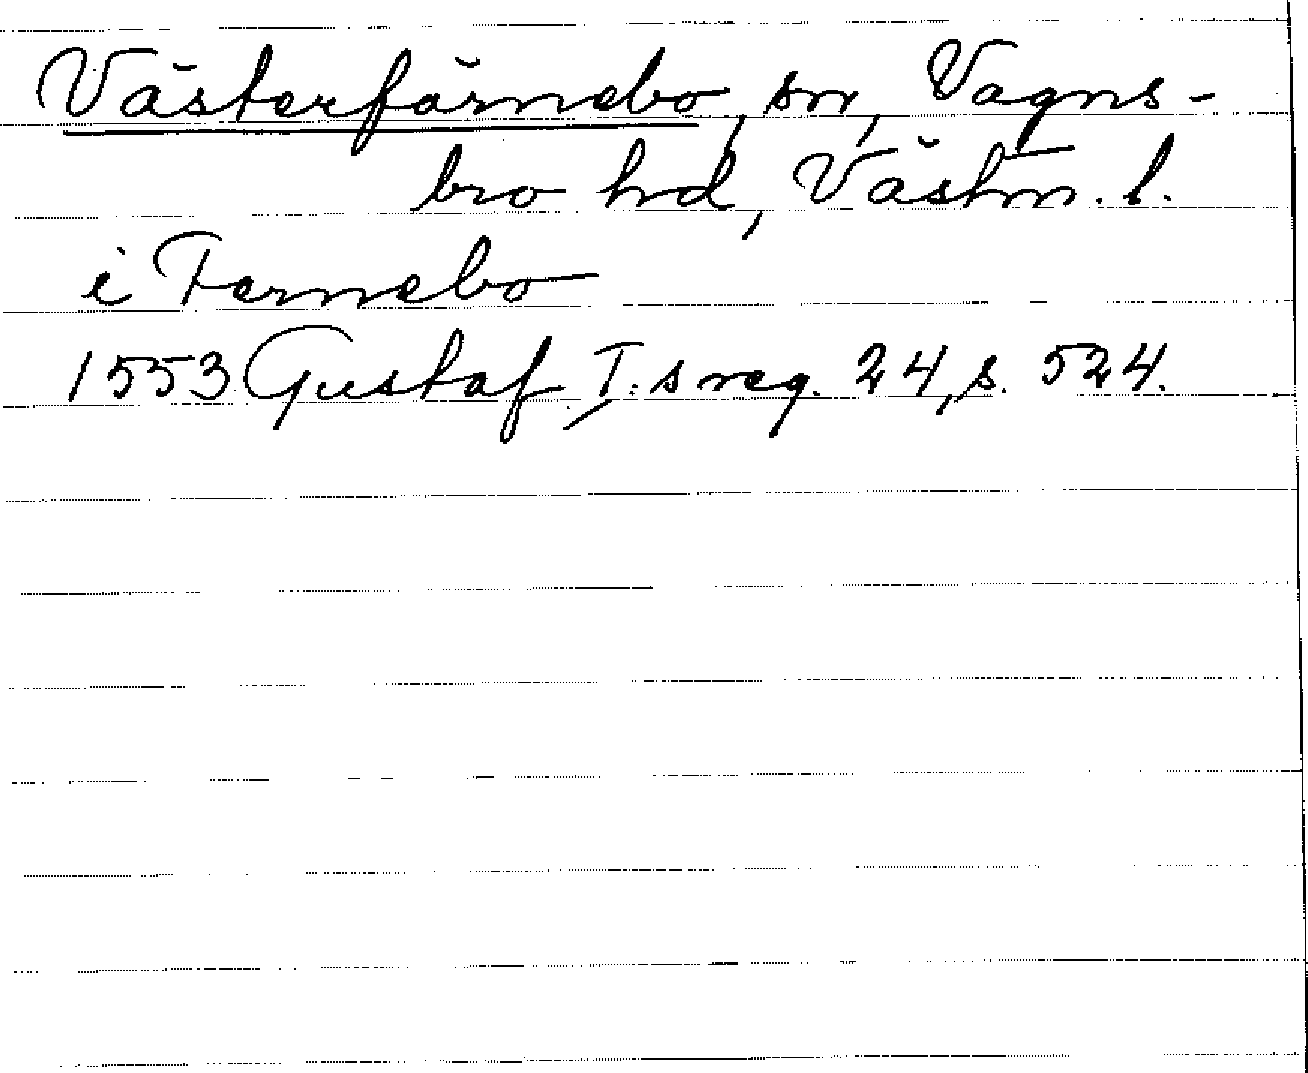 Västerfärnebo, sn, Vagns-
bro hd, Västm. l.
i Fernebo
1553 Gustaf I:s reg. 24, s. 524.